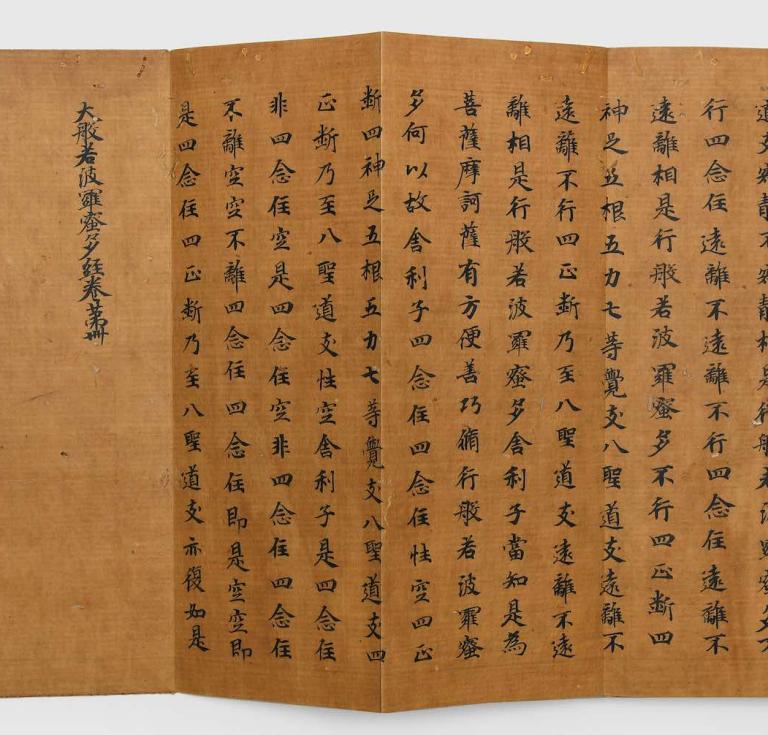 道支寂靜不寂靜相是行般若波羅蜜多不
行四念住遠離不遠離不行四念住遠離不
遠離相是行般若波羅蜜多不行四正斷四
神足五根五力七等覺支八聖道支遠離不
遠離不行四正斷乃至八聖道支遠離不遠
離相是行般若波羅蜜多舍利子當知是為
菩薩摩訶薩有方便善巧脩行般若波羅蜜
多何以故舍利子四念住四念住性空四正
斷四神足五根五力七等覺支八聖道支四
正斷乃至八聖道支性空舍利子是四念住
非四念住空是四念住空非四念住四念住
不離空空不離四念住四念住即是空空即
是四念住四正斷乃至八聖道支亦復如是
大般若波羅蜜多経卷第卌